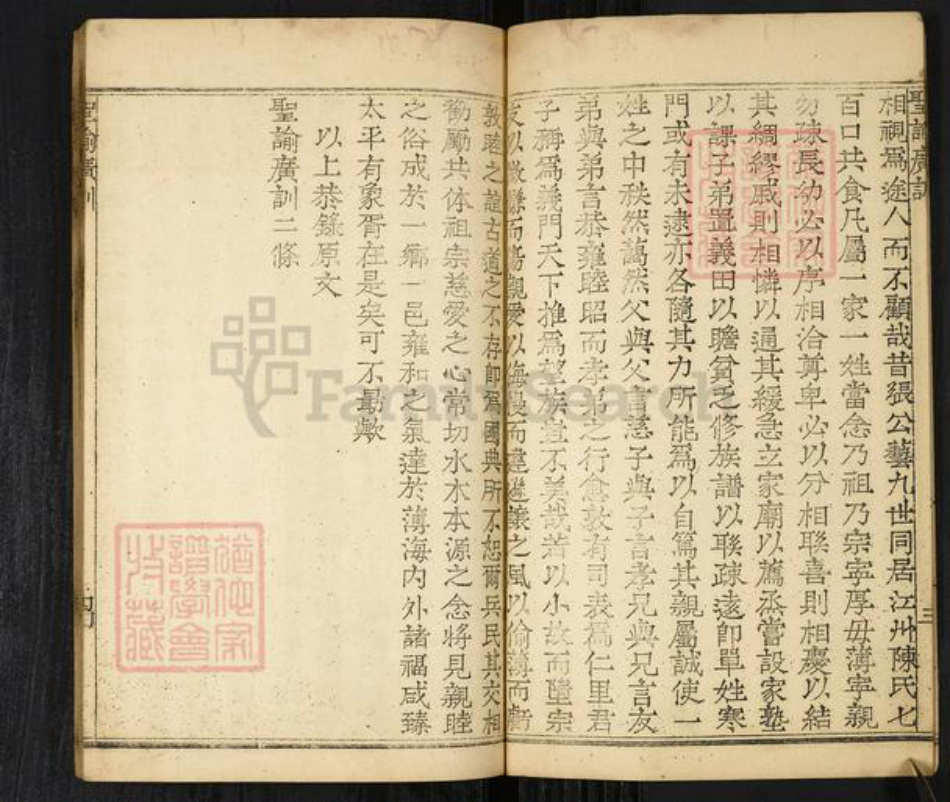 聖諭廣訓
相視爲途人而不顧哉昔張公藝九世同居江州陳氏七
百口共食凡屬一家一姓當念乃祖乃宗寜厚毋薄寜親
勿疎長幼必以序相洽尊卑必以分相聯喜則相慶以結
其綢繆戚則相憐以通其緩急立家廟以薦烝嘗設家塾
以課子弟置義田以贍貧乏修族譜以聯疎逺卽單姓寒
門或有未逮亦各隨其力所能爲以自篤其親屬誠使一
姓之中秩然藹然父與父言慈子與子言孝兄與兄言友
弟與弟言恭雍睦昭而孝弟之行愈敦有司表爲仁里君
子稱爲義門天下推爲望族豈不美哉若以小故而隳宗
支以微嫌而傷親愛以侮慢而違遜讓之風以偷薄而虧
敦睦之誼古道之不存卽爲國典所不恕爾兵民其交相
勸勵共体祖宗慈愛之心常切水木本源之念將見親睦
之俗成於一鄉一邑雍和之氣達於薄海內外諸福咸臻
太平有象胥在是矣可不勗歟
以上恭錄原文
聖諭廣訓二條
聖諭廣訓
三
四
FamilySearch